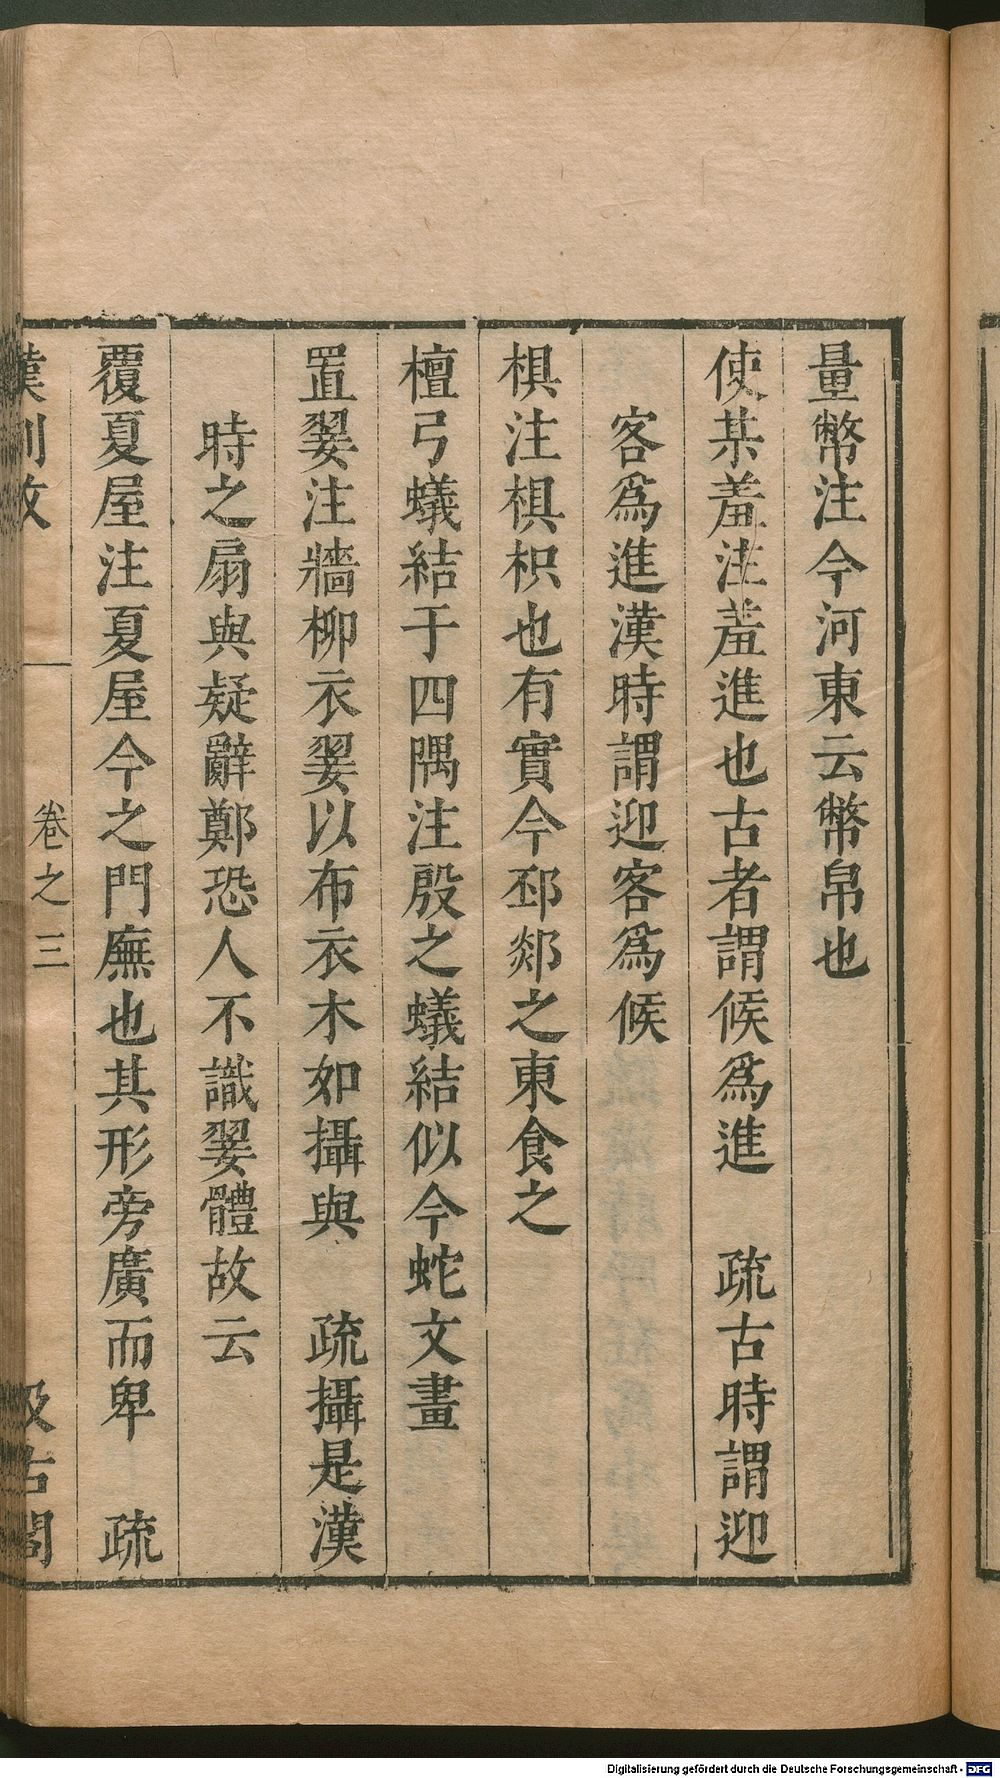 量幣注今河東云幣帛也
使某羞注羞進也古者謂候爲進　疏古時謂迎
客爲進漢時謂迎客爲候
椇注椇枳也有實今邳郯之東食之
檀弓蟻結于四隅注殷之蟻結似今蛇文畫
置翣注牆柳衣翣以布衣木如攝與　疏攝是漢
時之扇與疑辭鄭恐人不識翣體故云
覆夏屋注夏屋今之門廡也其形旁廣而卑　疏
漢制攷　卷之三　汲古閣
Digitalisierung gefördert durch die Deutsche Forschungsgemeinschaft - DFG